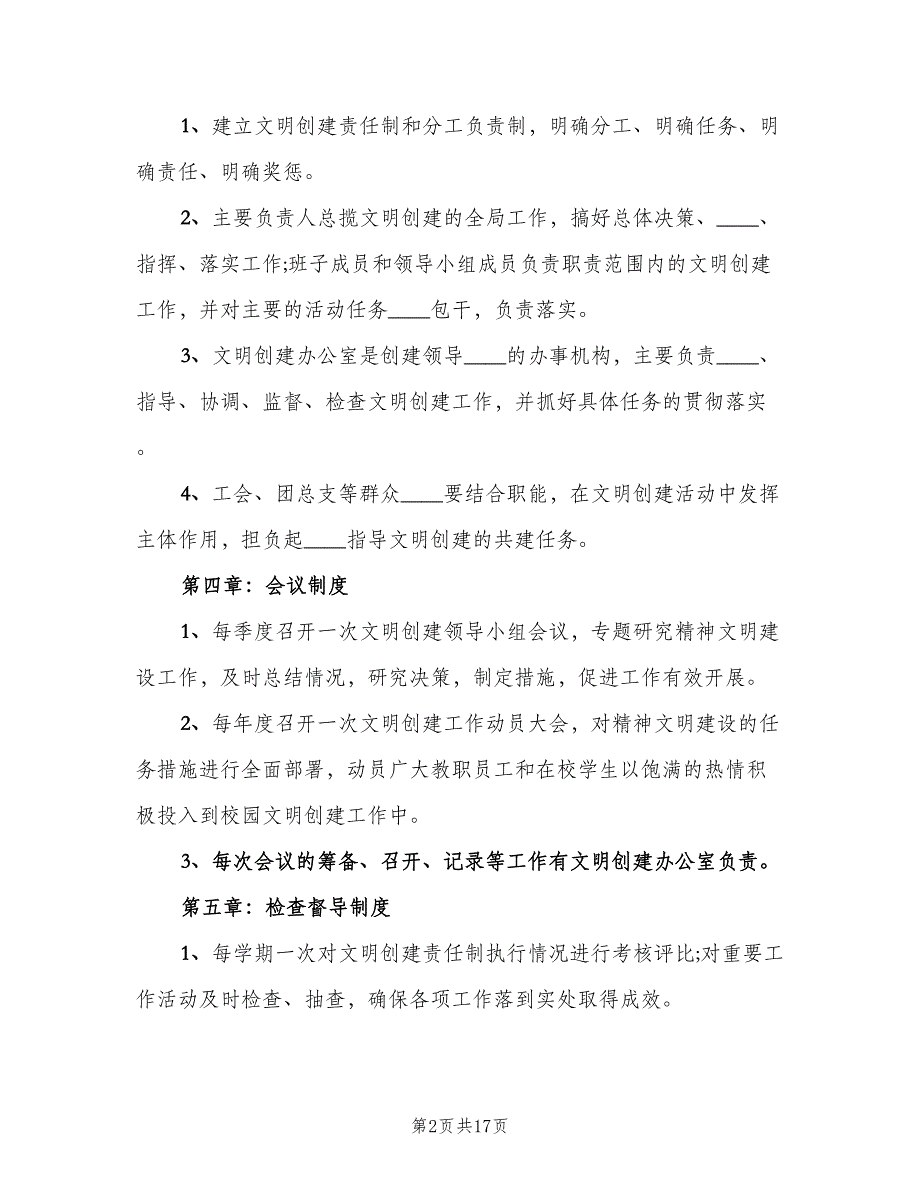 1、建立文明创建责任制和分工负责制，明确分工、明确任务、明
确责任、明确奖惩。
2、主要负责人总揽文明创建的全局工作，搞好总体决策、____、
指挥、落实工作;班子成员和领导小组成员负责职责范围内的文明创建
工作，并对主要的活动任务____包干，负责落实。
3、文明创建办公室是创建领导____的办事机构，主要负责____、
指导、协调、监督、检查文明创建工作，并抓好具体任务的贯彻落实
。
4、工会、团总支等群众____要结合职能，在文明创建活动中发挥
主体作用，担负起____指导文明创建的共建任务。
第四章：会议制度
1、每季度召开一次文明创建领导小组会议，专题研究精神文明建
设工作，及时总结情况，研究决策，制定措施，促进工作有效开展。
2、每年度召开一次文明创建工作动员大会，对精神文明建设的任
务措施进行全面部署，动员广大教职员工和在校学生以饱满的热情积
极投入到校园文明创建工作中。
3、每次会议的筹备、召开、记录等工作有文明创建办公室负责。
第五章：检查督导制度
1、每学期一次对文明创建责任制执行情况进行考核评比;对重要工
作活动及时检查、抽查，确保各项工作落到实处取得成效。
第2页共17页